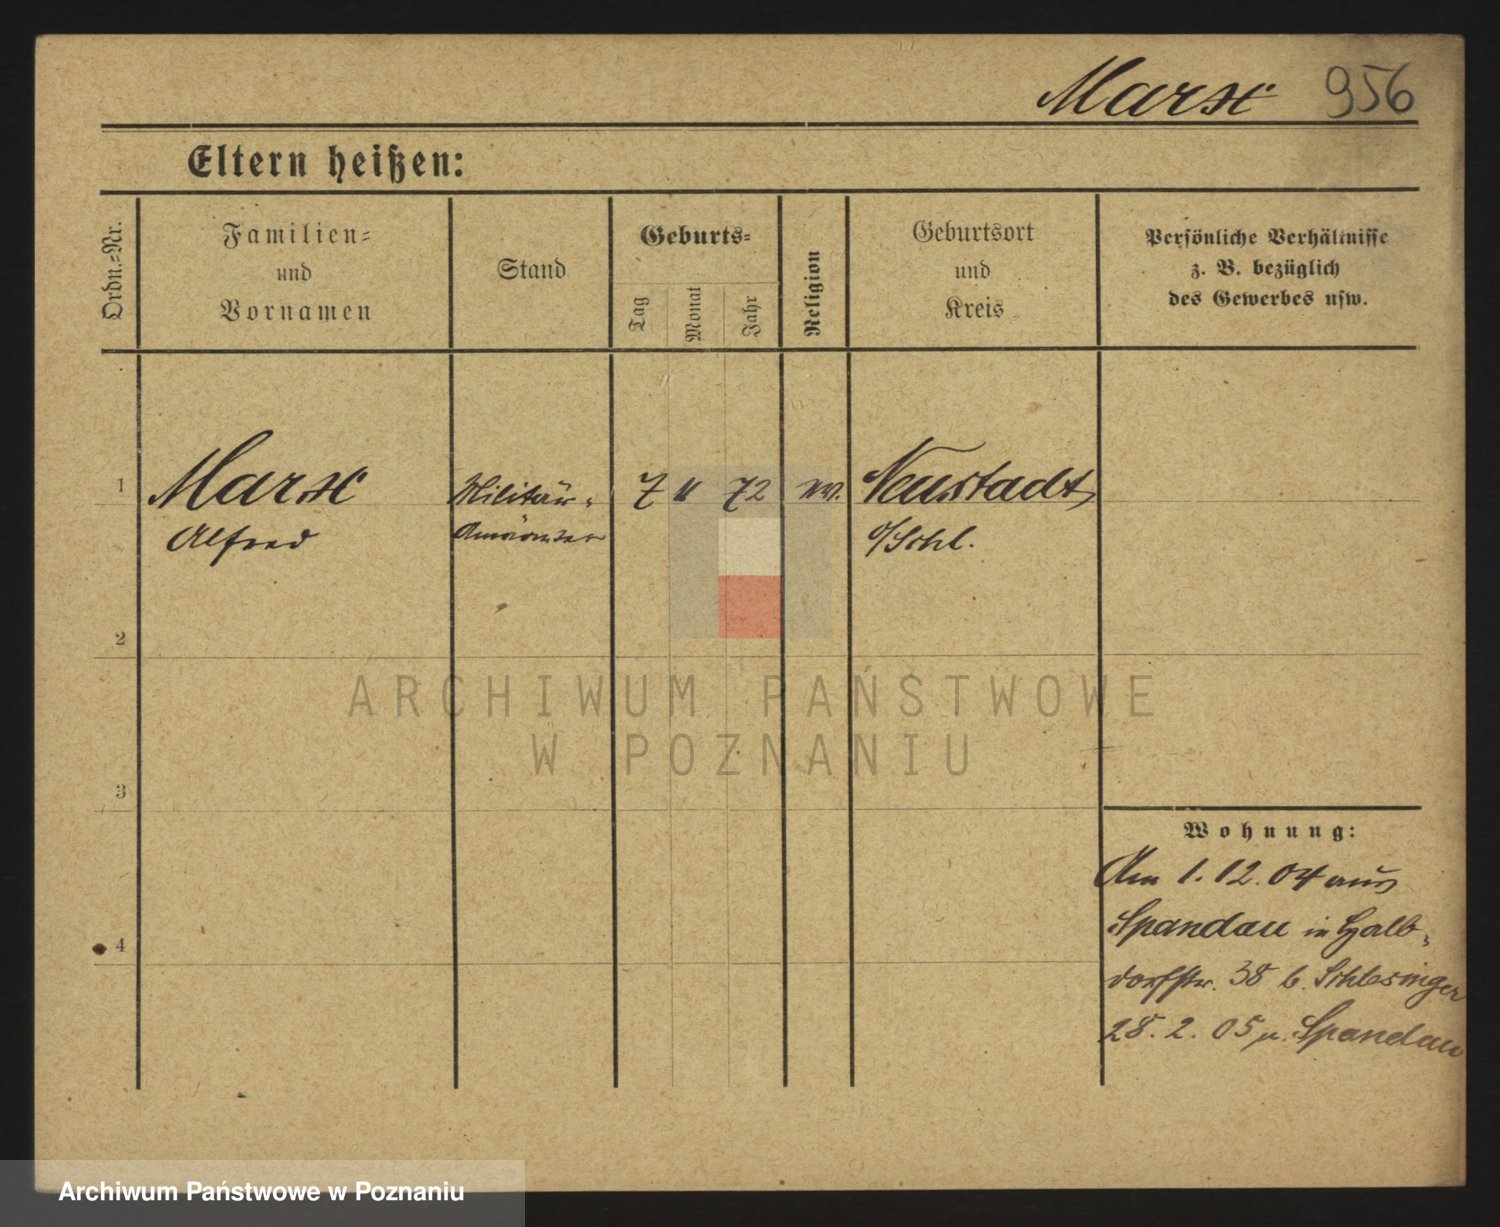 Marx 956
Eltern heißen:
Ordn.-Nr.
Familien-
und
Vornamen
Stand
Geburts-
Tag
Monat
Jahr
Religion
Geburtsort
und
Kreis
Persönliche Verhältnisse
z. B. bezüglich
des Gewerbes usw.
1 Marx Militär- 7 72 Neustadt
Alfred Anwärter o/Schl.
2
ARCHIWUM PAŃSTWOWE
W POZNANIU
3
Wohnung:
Am 1. 12. 04 aus
Spandau in Halb-
4
dorfstr. 38 b. Schlesinger
28. 2. 05 n. Spandau
Archiwum Państwowe w Poznaniu